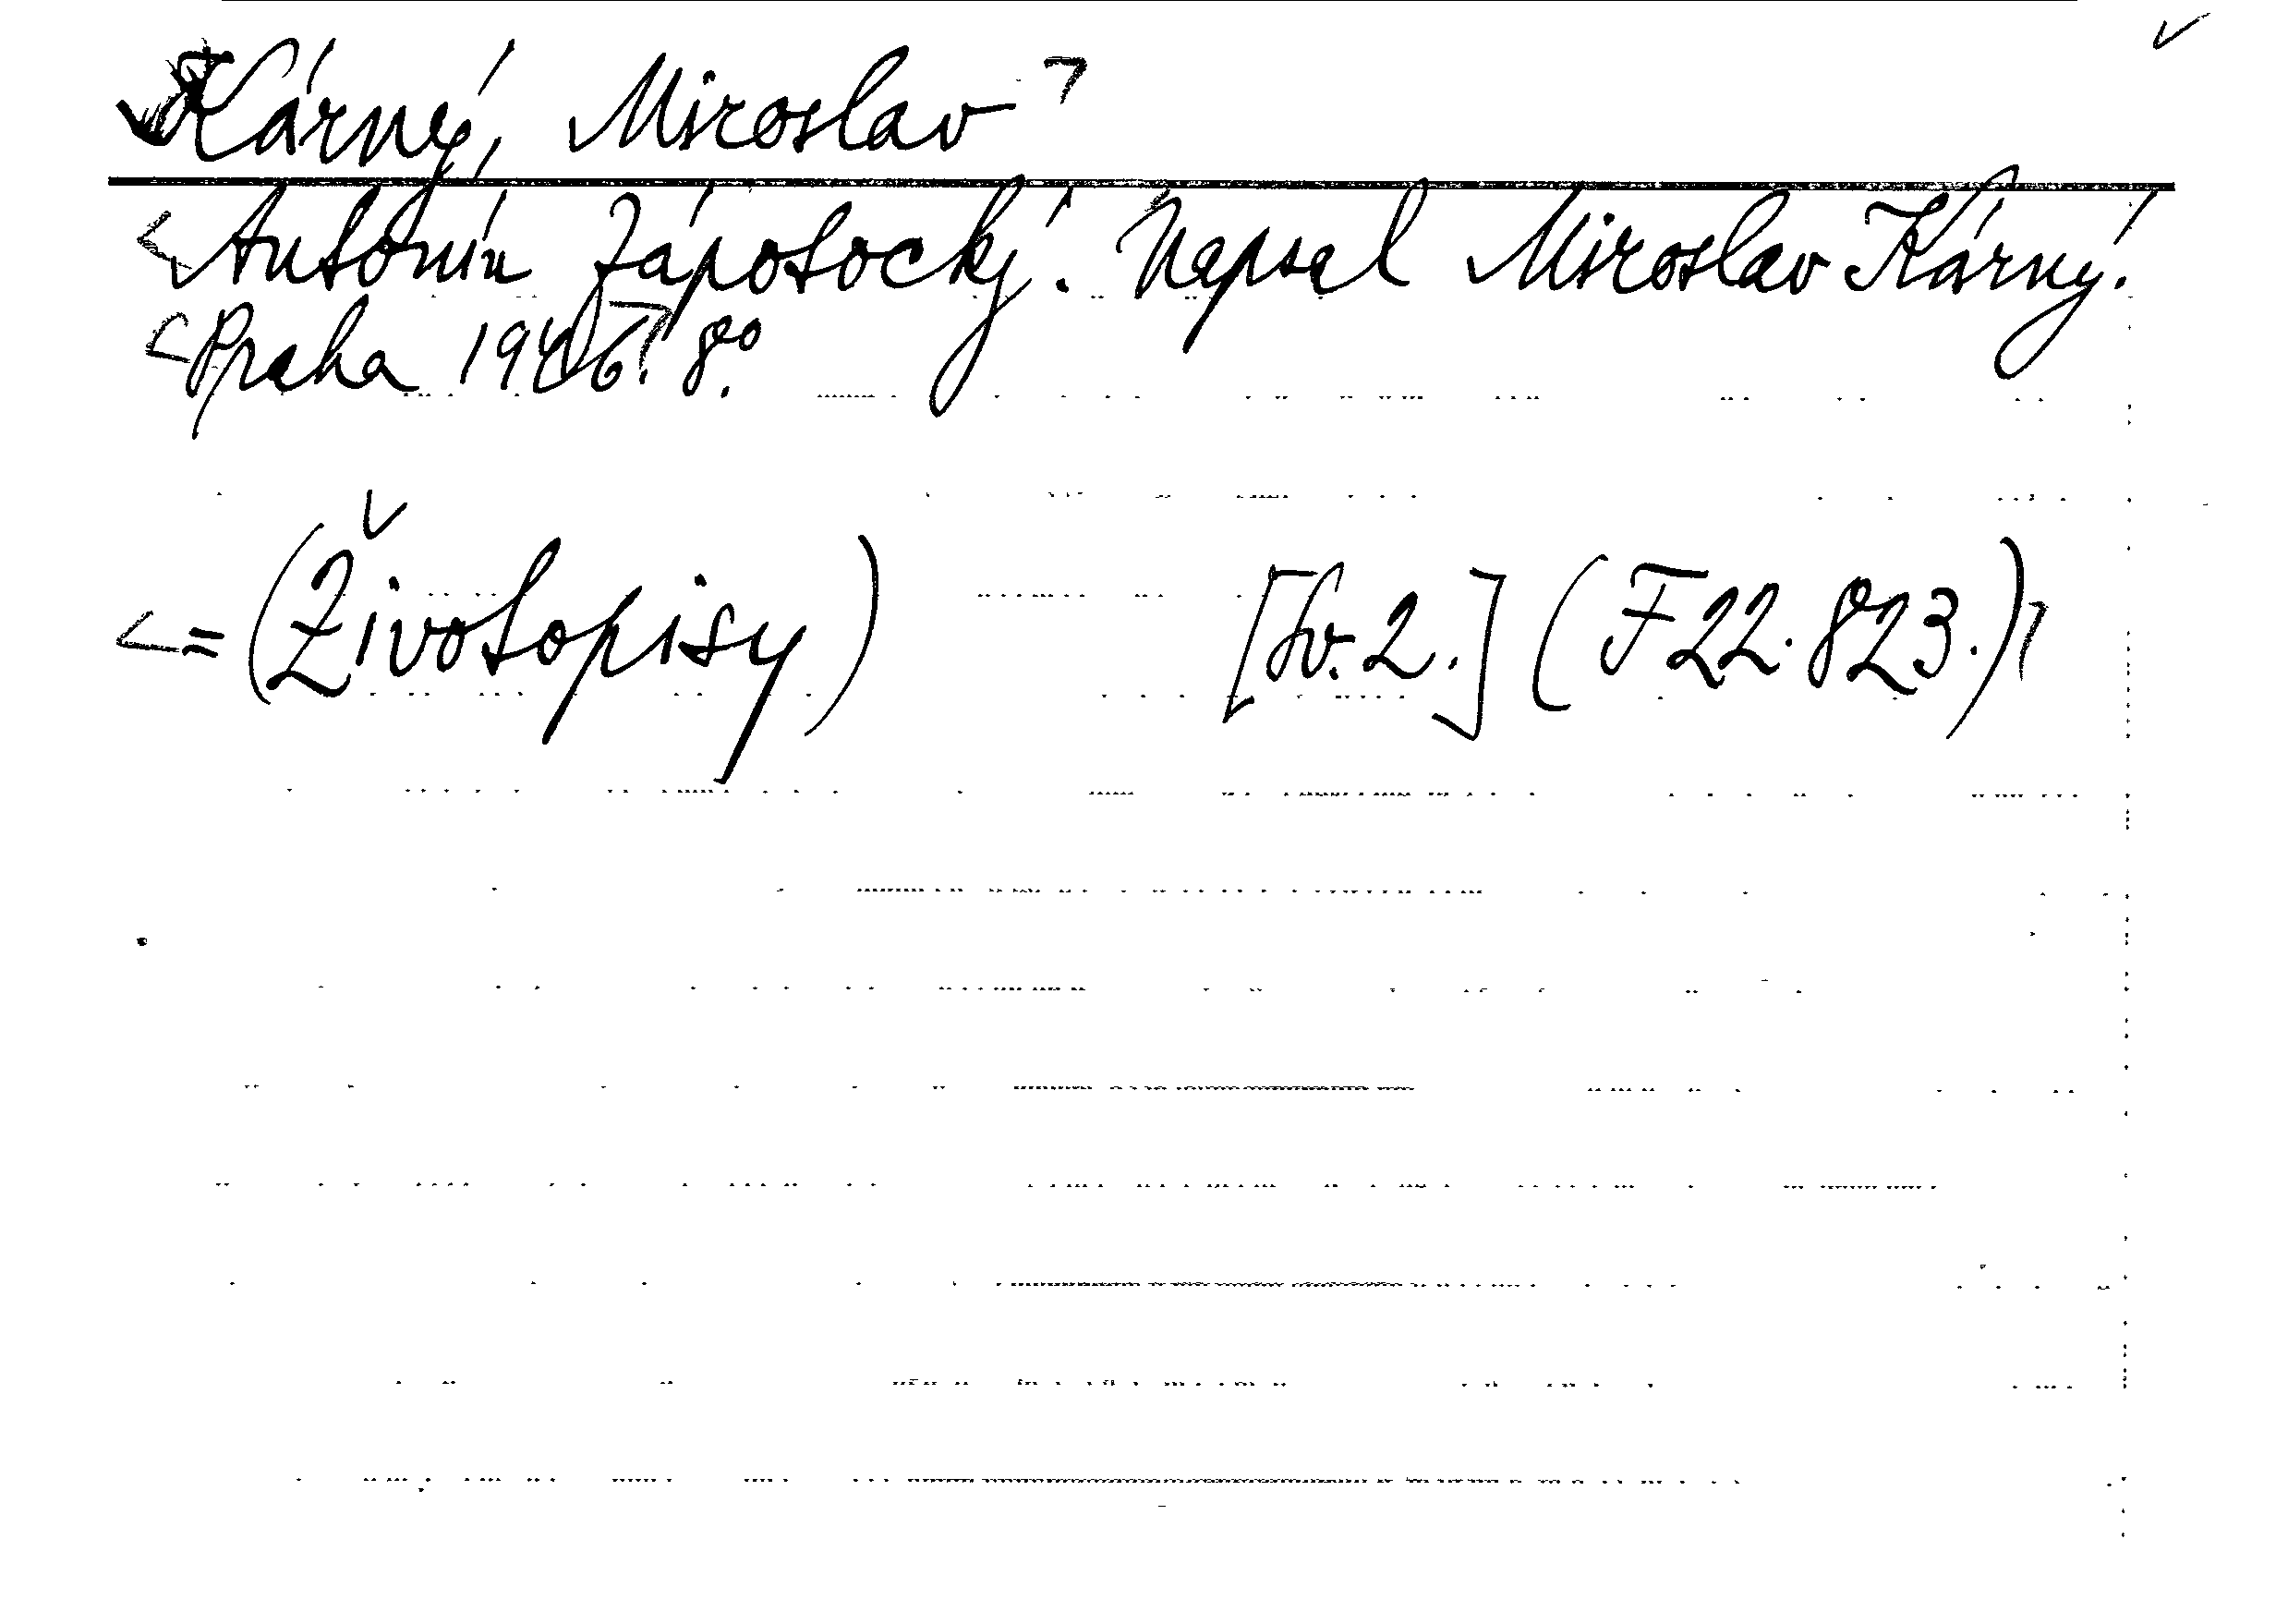 Kárný, Miroslav
Antonín Zápotocký. Napsal Miroslav Kárný.
Praha 1946. 8°.
=(Životopisy) [Sv. 2.] (F22.823.)